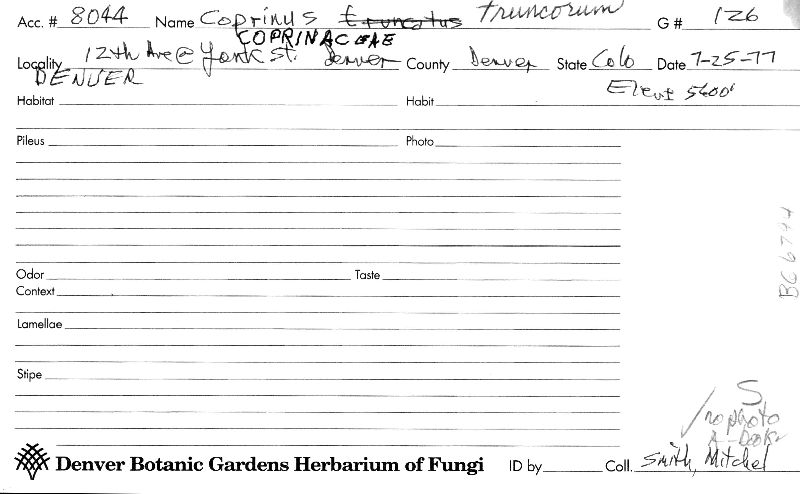 Acc. # 8044 Name Coprinus truncatus truncorum G # 126
COPRINACEAE
Locality 12th Ave @ York St. Denver County Denver State Colo Date 7-25-77
DENVER
Elev 5400'
Habitat Habit
Pileus Photo
Odor Taste
Context
Lamellae
Stipe
BC 6794
S
no photo
Denver Botanic Gardens Herbarium of Fungi ID by Coll. Smith, Mitchel